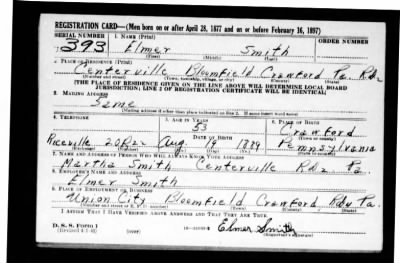 REGISTRATION CARD—(Men born on or after April 28, 1877 and on or before February 16, 1897)
SERIAL NUMBER 1. NAME (Print) ORDER NUMBER
393 Elmer Smith
(First) (Middle) (Last)
2. PLACE OF RESIDENCE (Print)
Centerville Bloomfield Crawford Pa. Rd2
(Number and street) (Town, township, village, or city) (County) (State)
[THE PLACE OF RESIDENCE GIVEN ON THE LINE ABOVE WILL DETERMINE LOCAL BOARD
JURISDICTION; LINE 2 OF REGISTRATION CERTIFICATE WILL BE IDENTICAL]
3. MAILING ADDRESS
Same
[Mailing address if other than place indicated on line 2. If same insert word same]
4. TELEPHONE 5. AGE IN YEARS 6. PLACE OF BIRTH
53 Crawford
DATE OF BIRTH (Town or county)
Riceville 20R22 Aug. 19 1889 Pennsylvania
(Mo.) (Day) (Yr.) (State or country)
7. NAME AND ADDRESS OF PERSON WHO WILL ALWAYS KNOW YOUR ADDRESS
Martha Smith Centerville Rd2 Pa.
8. EMPLOYER'S NAME AND ADDRESS
Elmer Smith
9. PLACE OF EMPLOYMENT OR BUSINESS
Union City Bloomfield Crawford Pa.
(Number and street or R. F. D. number) (Town) (County) (State)
I AFFIRM THAT I HAVE VERIFIED ABOVE ANSWERS AND THAT THEY ARE TRUE.
D. S. S. Form 1 Elmer Smith
(over) (Registrant's signature)